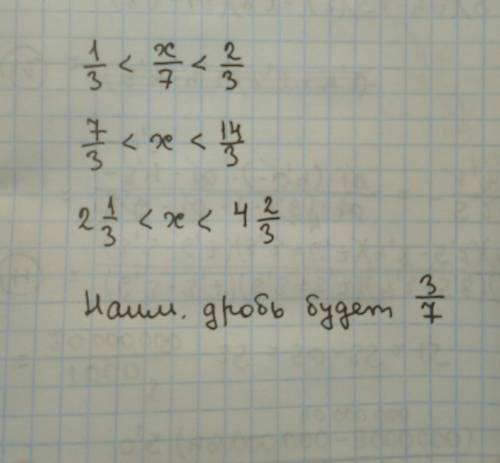 1/3 < x/7 < 2/3
7/3 < x < 14/3
2 1/3 < x < 4 2/3
Наим. дробь будет 3/7